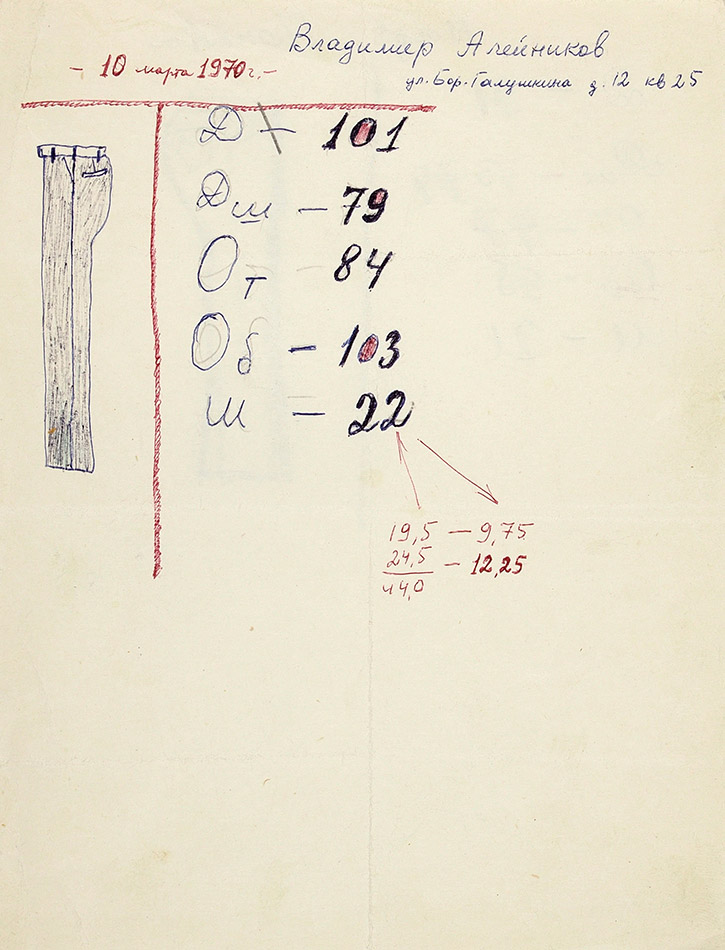 Владимир Алейников
- 10 марта 1970 г. -
ул. Бор. Галушкина д. 12 кв 25
Д - 101
Дш - 79
От 84
Об - 103
Ш - 22
19,5 - 9,75
24,5 - 12,25
44,0